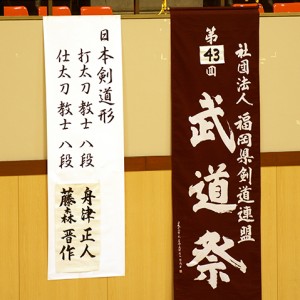 社団法人 福岡県剣道連盟
第43回
武道祭
日本剣道形
打太刀 教士 八段
仕太刀 教士 八段
舟津正人
藤森晋作